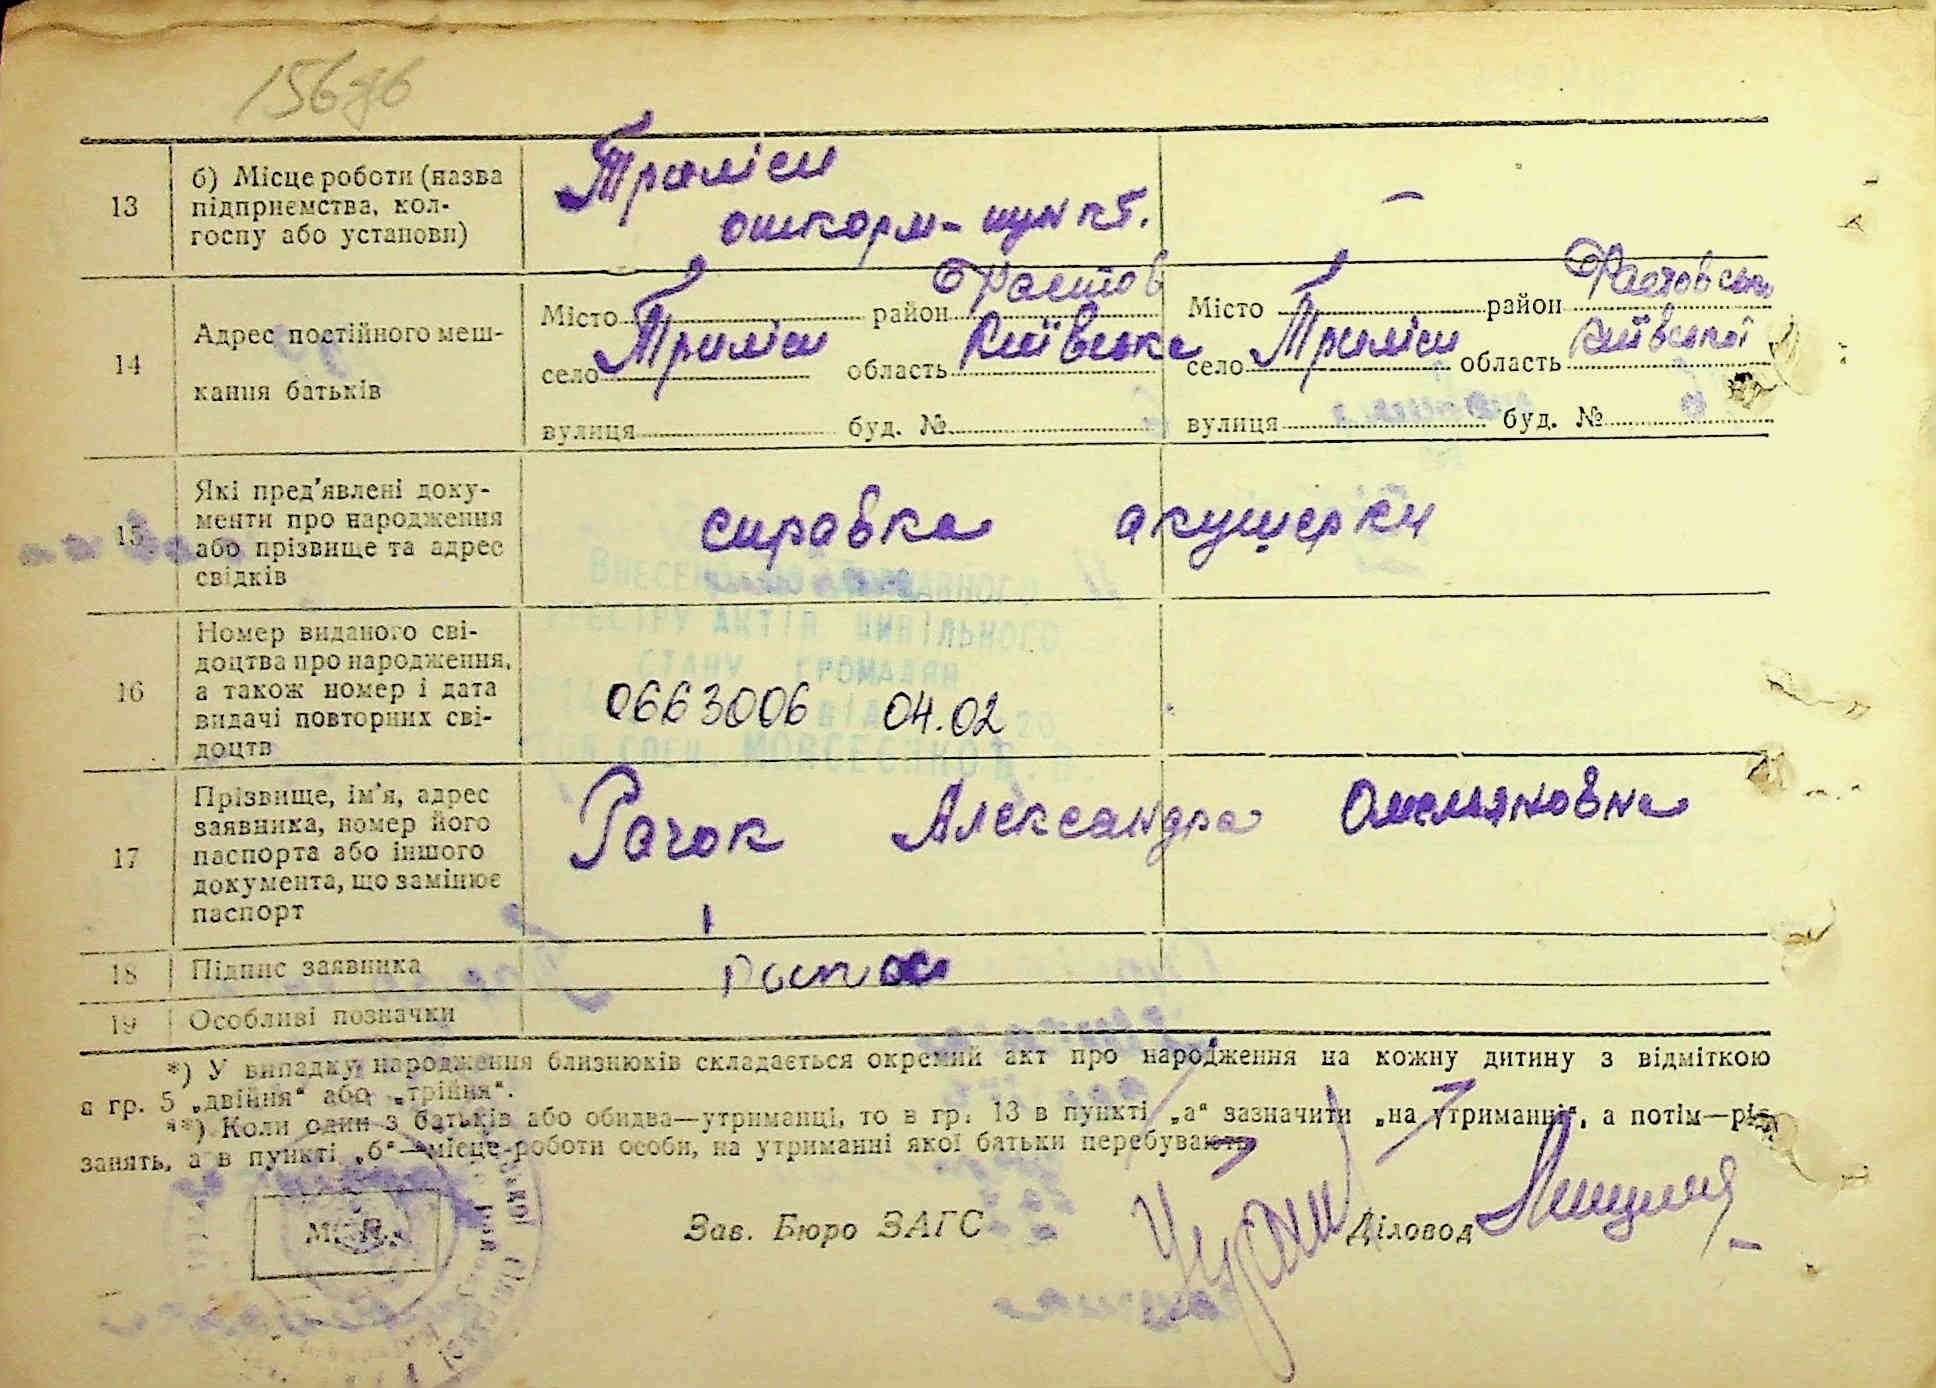 13
б) Місце роботи (назва
підприємства, кол-
госпу або установи)
Триліси
пункт.
–
14
Адрес постійного меш-
кання батьків
Місто район Фастов
село Триліси область Київська
вулиця буд. №
Місто район Фастовсько
село Триліси область Київської
вулиця буд. №
15
Які пред'явлені доку-
менти про народження
або прізвище та адрес
свідків
справка акушерки
16
Номер виданого сві-
доцтва про народження,
а також номер і дата
видачі повторних сві-
доцтв
0663006 04.02
17
Прізвище, ім'я, адрес
заявника, номер його
паспорта або іншого
документа, що замінює
паспорт
Рачок Александра Омеляновна
18
Підпис заявника
19
Особливі позначки
*) У випадку народження близнюків складається окремий акт про народження на кожну дитину з відміткою
в гр. 5 „двійня“ або „трійня“.
**) Коли один з батьків або обидва—утриманці, то в гр. 13 в пункті „а“ зазначити „на утриманні“, а потім—рід
занять, а в пункті „б“—місце роботи особи, на утриманні якої батьки перебувають
М. П.
Зав. Бюро ЗАГС
Діловод